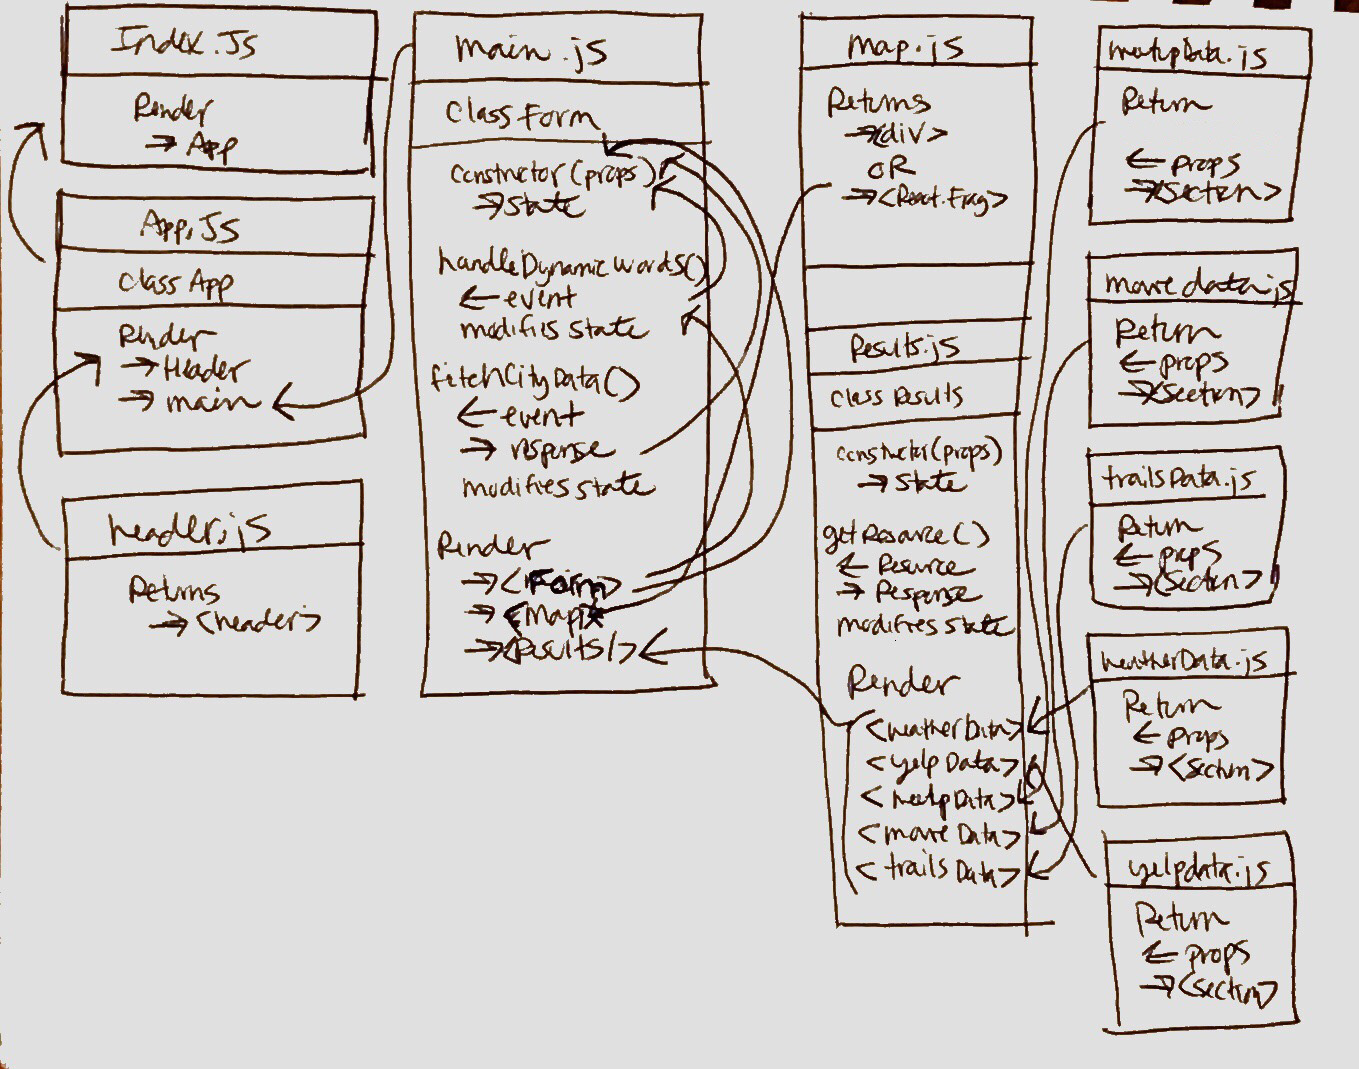 Index.Js
Render
→ App
App.JS
Class App
Render
→ Header
→ main
header.js
Returns
→ <header>
main.js
Class Form
constructor(props)
→ State
handleDynamicWords()
← event
modifies state
fetchCityData()
← event
→ response
modifies state
Render
→ <Form>
→ <Map>
→ <Results/>
map.js
Returns
→ <div>
OR
→ <React.Frag>
Results.js
class Results
constructor(props)
→ State
getResource()
← Resource
→ Response
modifies state
Render
<weatherData>
<yelpData>
<meetupData>
<movieData>
<trailsData>
meetupData.js
Return
← props
→ <section>
moviedata.js
Return
← props
→ <section>
trailsData.js
Return
← props
→ <section>
weatherData.js
Return
← props
→ <section>
yelpdata.js
Return
← props
→ <section>